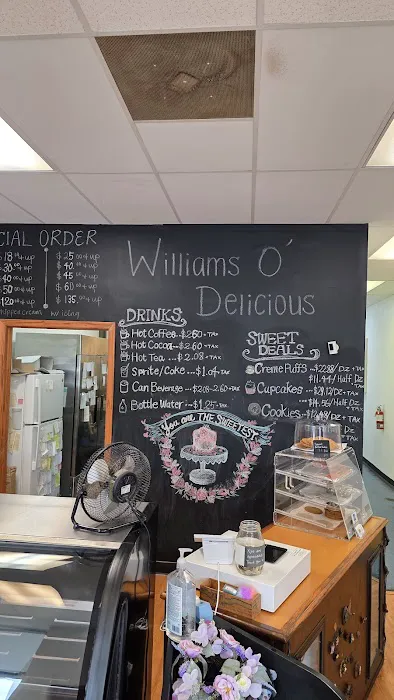 CIAL ORDER
$ 25.00 & up
$ 40.00 & up
$ 45.00 & up
$ 60.00 & up
$ 135.00 & up
w/ icing
Williams O'
Delicious
DRINKS
Hot Coffee...$2.60 + TAX
Hot Cocoa...$2.60 + TAX
Hot Tea...$2.08 + TAX
Sprite/Coke...$1.04 + TAX
Can Beverage...$2.08-2.60 + TAX
Bottle Water...$1.25 + TAX
SWEET
DEALS
Creme Puffs...$22.88/Dz + TAX
$11.44/Half Dz
Cupcakes...$29.12/Dz + TAX
$14.56/Half Dz
Cookies
/Dz + TAX
You are THE SWEETEST